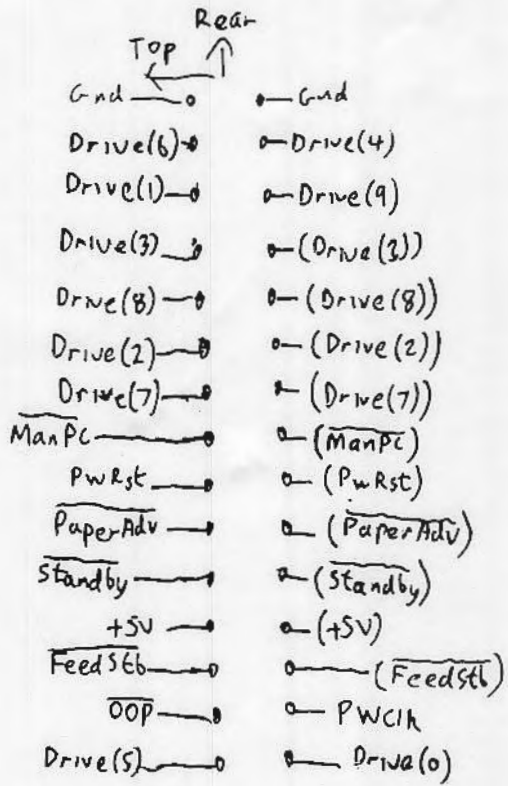 Rear
Top
Gnd Gnd
Drive(6) Drive(4)
Drive(1) Drive(9)
Drive(3) (Drive(3))
Drive(8) (Drive(8))
Drive(2) (Drive(2))
Drive(7) (Drive(7))
M̅a̅n̅P̅C̅ (M̅a̅n̅P̅C̅)
PWRst (PWRst)
P̅a̅p̅e̅r̅A̅d̅v̅ (P̅a̅p̅e̅r̅A̅d̅v̅)
S̅t̅a̅n̅d̅b̅y̅ (S̅t̅a̅n̅d̅b̅y̅)
+5V (+5V)
F̅e̅e̅d̅S̅t̅b̅ (F̅e̅e̅d̅S̅t̅b̅)
O̅O̅P̅ PWClk
Drive(5) Drive(0)